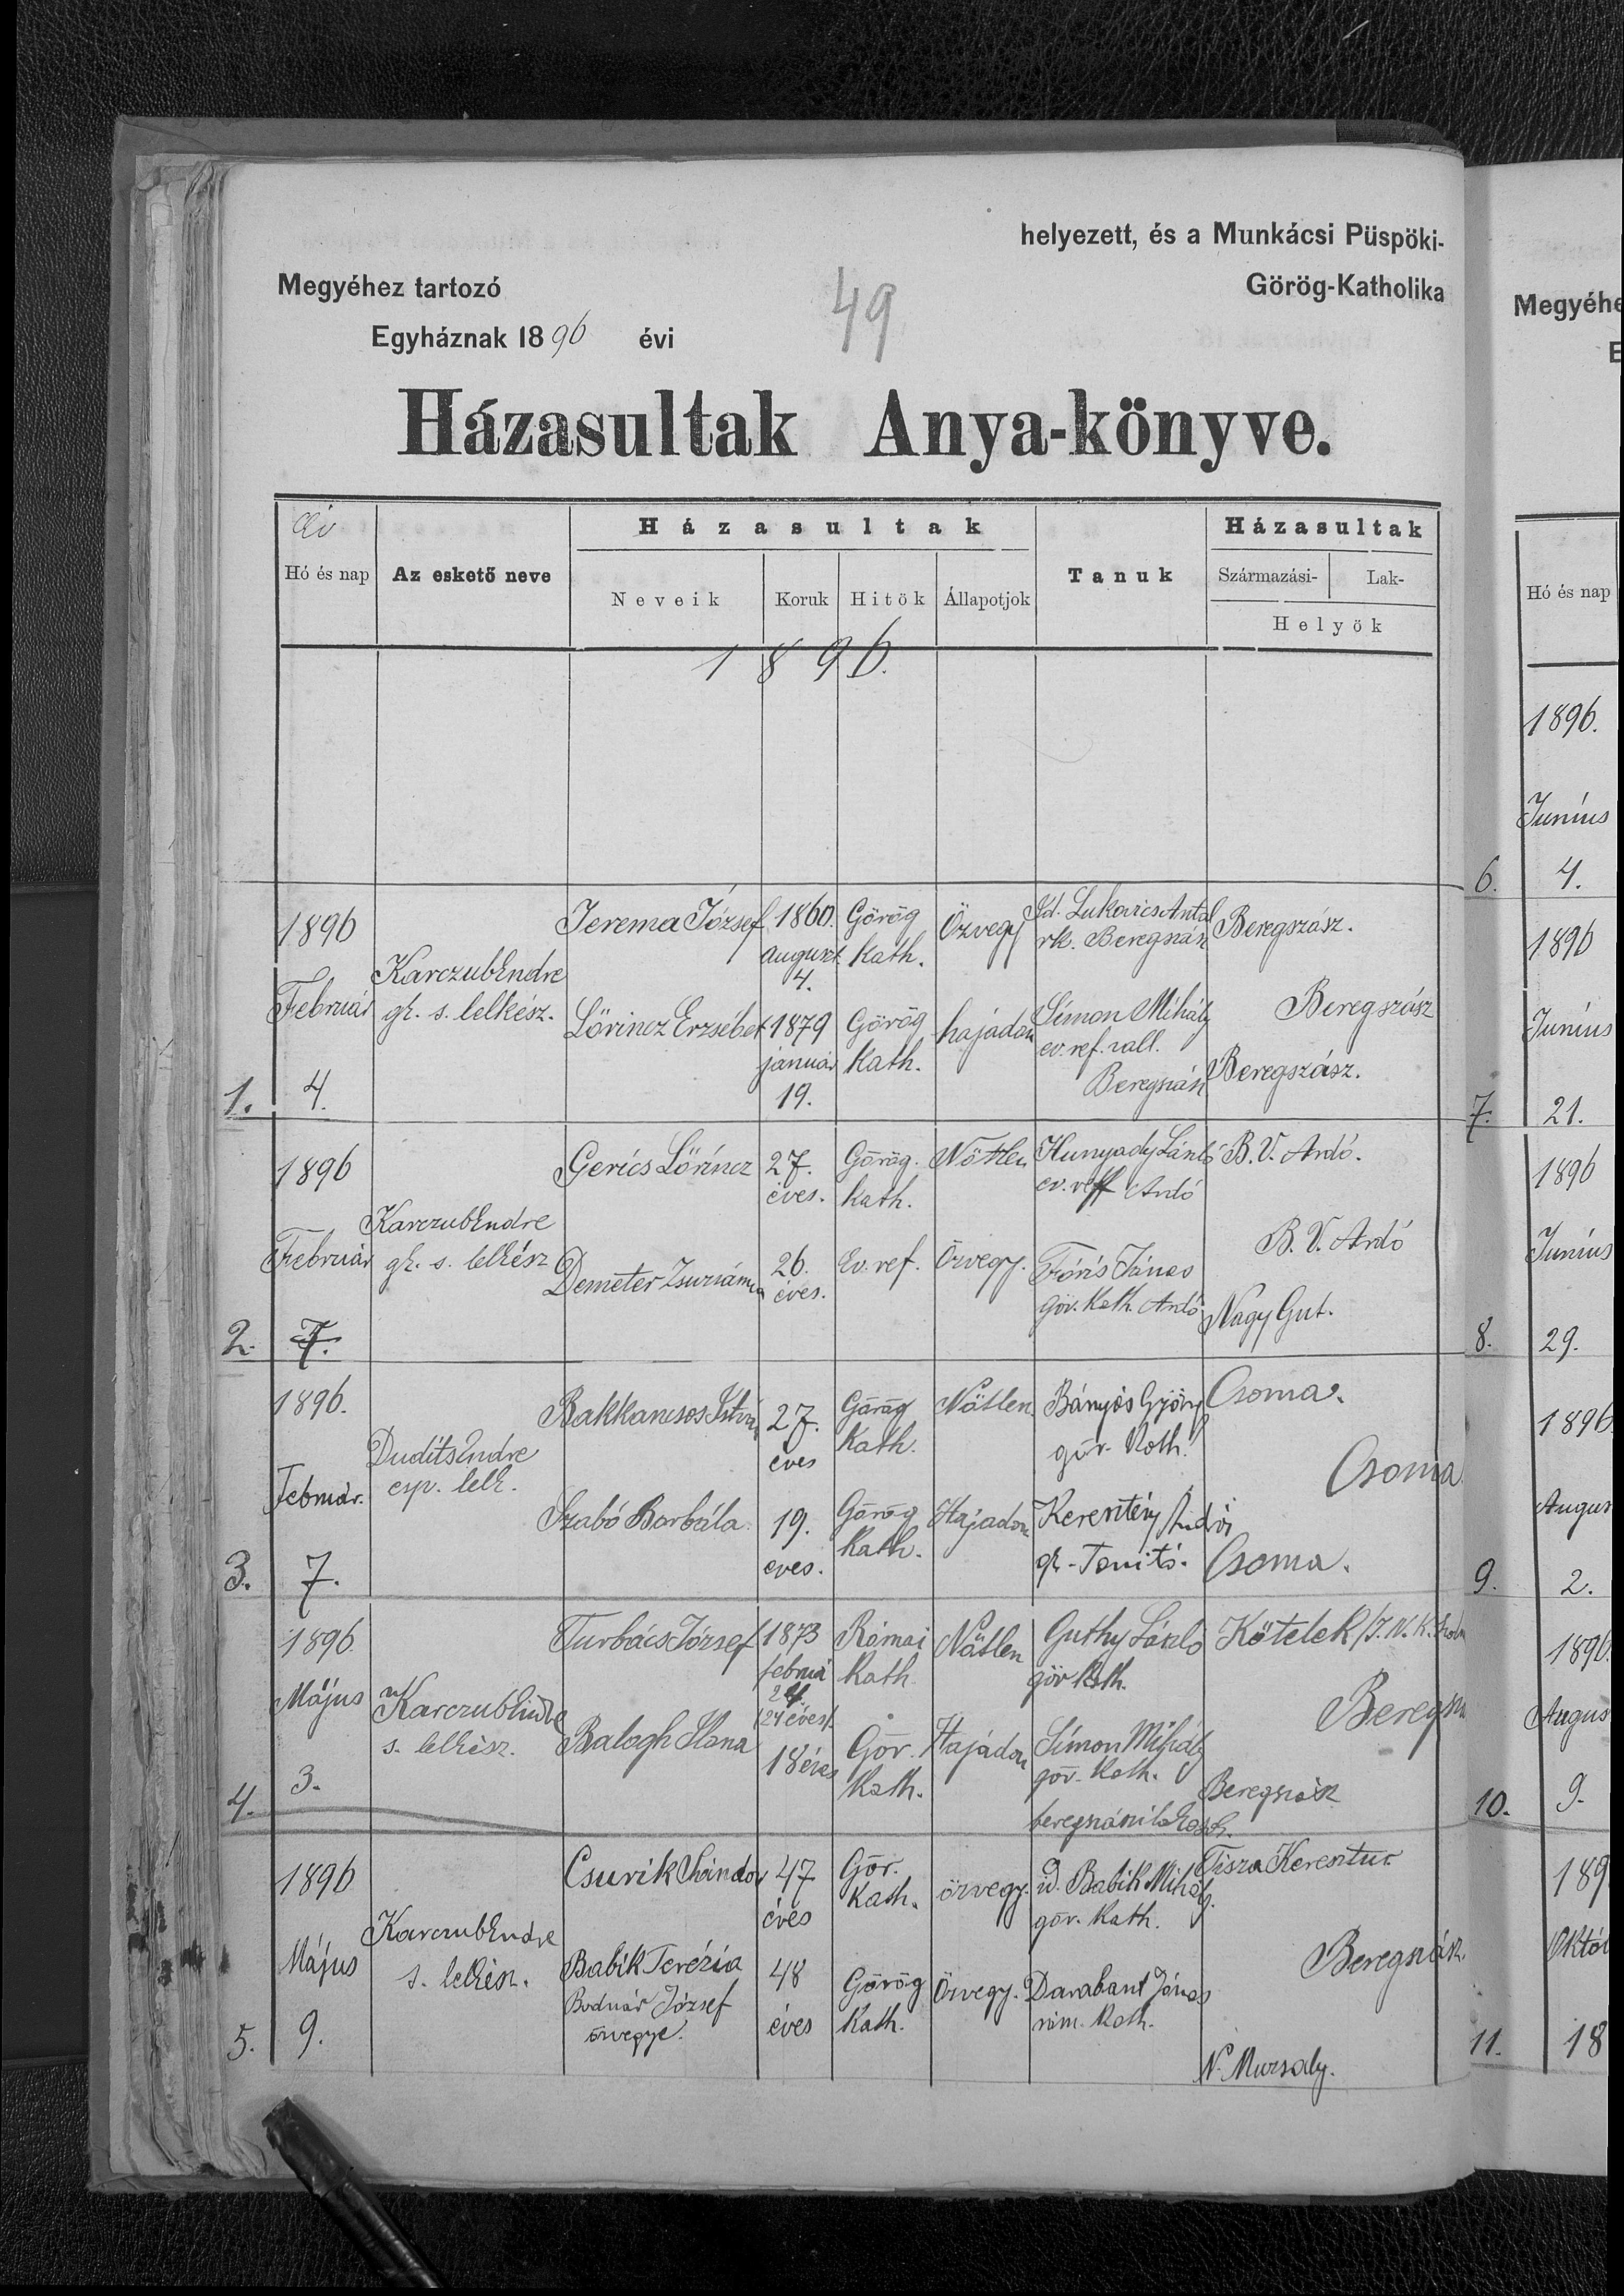 helyezett, és a Munkácsi Püspöki-
Megyéhez tartozó
Görög-Katholika
Egyháznak 1896 évi
49
Házasultak Anya-könyve.
Év
Hó és nap
Az eskető neve
Házasultak
Neveik
Koruk
Hitök
Állapotjok
Tanuk
Házasultak
Származási-
Lak-
Helyök
1896.
1.
1896
Február
4.
Karczub Endre
gk. s. lelkész.
Jerema József
1860.
august.
4.
Görög
Kath.
Özvegy
Id. Lukovics Antal
rk. Beregszász
Beregszász.
Lőrincz Erzsébet
1879
január
19.
Görög
Kath.
hajadon
Simon Mihály
ev. ref. vall.
Beregszász
Beregszász
Beregszász.
2.
1896
Február
7.
Karczub Endre
gk. s. lelkész
Gerics Lőrincz
27.
éves.
Görög.
Kath.
Nőtlen
Hunyady László
ev. reff Ardó
B. V. Ardó.
Demeter Zsuzsánna
26.
éves.
Ev. ref.
Özvegy.
Fóris János
gör. Kath. Ardó
B. V. Ardó
Nagy Gut.
3.
1896.
Február.
7.
Dudits Endre
esp. lelk.
Bakkancsos István
27.
éves
Görög
Kath.
Nőtlen
Bányás György
gör. Kath.
Csoma.
Szabó Borbála.
19.
éves.
Görög
Kath.
Hajadon
Keresztény
gk. Tanító.
Csoma
Csoma.
4.
1896.
Május
3.
Karczub Endre
s. lelkész.
Turbács József
1873
február
24 éves
Római
Kath.
Nőtlen
Guthy László
gör Kath.
Kőtelek
Balogh Ilona
18 éves
Gör.
Kath.
Hajadon
Simon Mihály
gör. Kath.
Beregszász
5.
1896
Május
9.
Karczub Endre
s. lelkész.
Csurik Sándor
47
éves
Gör.
Kath.
özvegy.
id. Babik Mihály.
gör. Kath.
Tisza Keresztur.
Babik Terézia
Bodnár József
özvegye.
48
éves
Görög
Kath.
Özvegy.
Darabant János
róm. Kath.
Beregszász.
N. Muzsaly.
Megyéhe
E
Hó és nap
6.
1896.
Június
4.
7.
1896
Június
21.
8.
1896
Június
29.
9.
1896
Augus
2.
10.
1896.
Augus
9.
11.
189
Októ
18